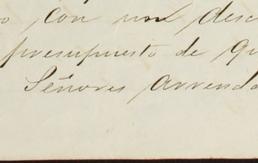 con un desc
presupuesto de qu
Señores arrenda